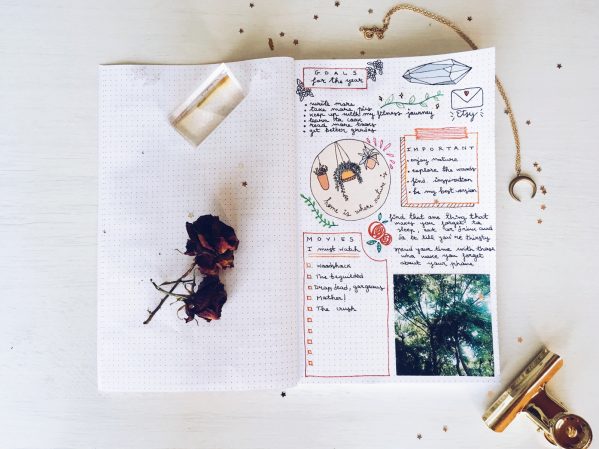 GOALS
for the year
• write more
• take more pics
• keep up with my fitness journey
• learn to cook
• read more books
• get better grades
Etsy
IMPORTANT
• enjoy nature
• explore the woods
• find inspiration
• be my best version
home is where nature is
find that one thing that
makes you forget to
sleep, eat or drink and
do it till you're thirsty
spend your time with those
who make you forget
about your phone
MOVIES
I must watch
Woodshock
The beguiled
Drop, dead, gorgeous
Mother!
The crush